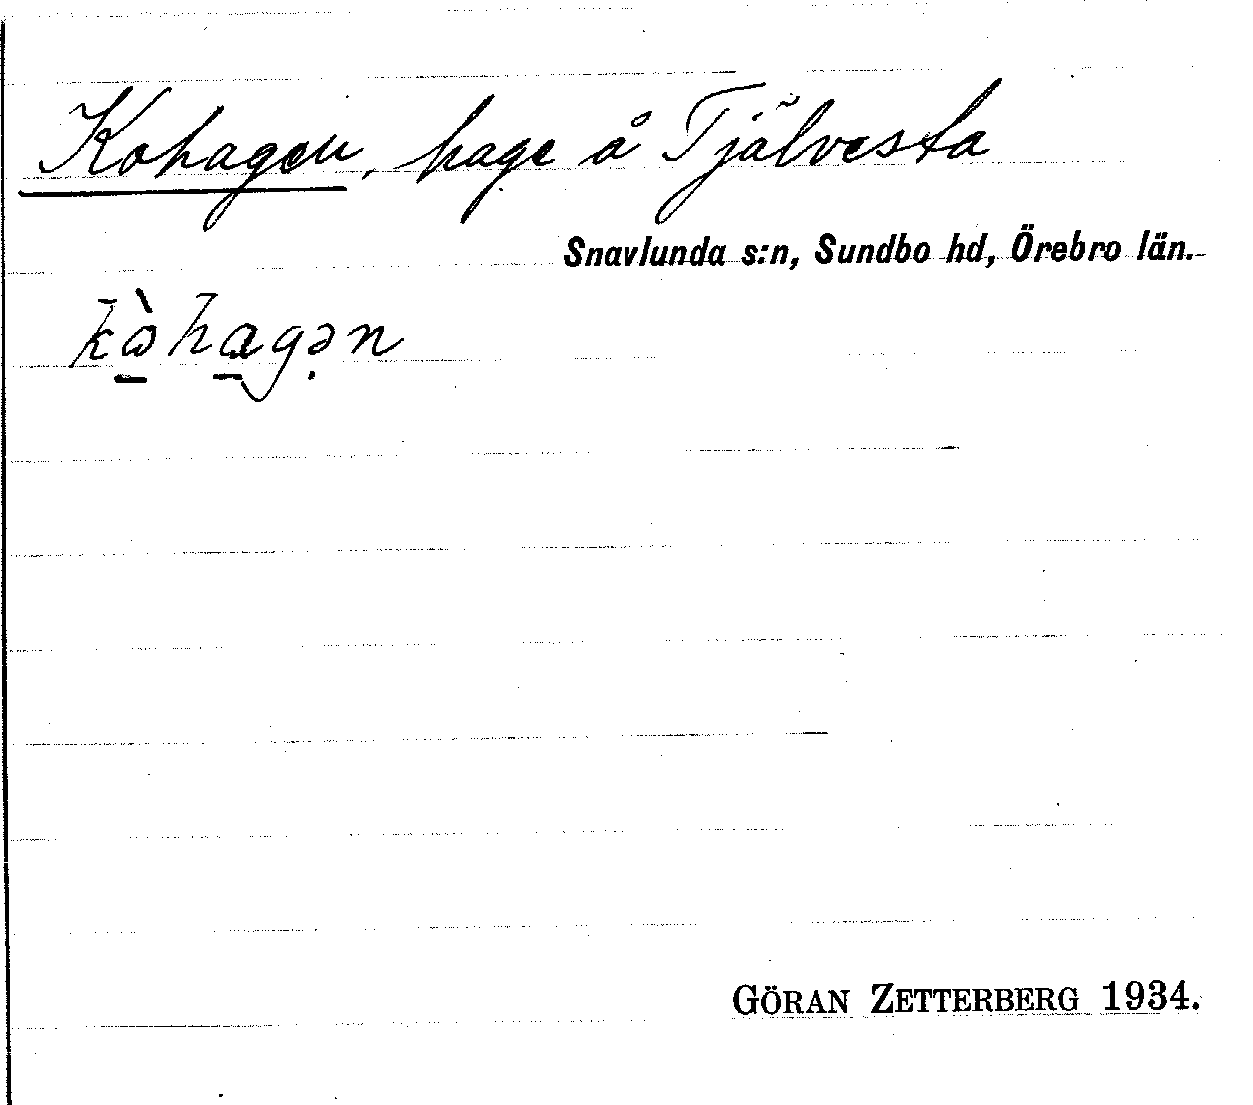 Kohagen, hage å Tjälvesta
Snavlunda s:n, Sundbo hd, Örebro län.
kὼ̠ha̠gə̣n
GÖRAN ZETTERBERG 1934.